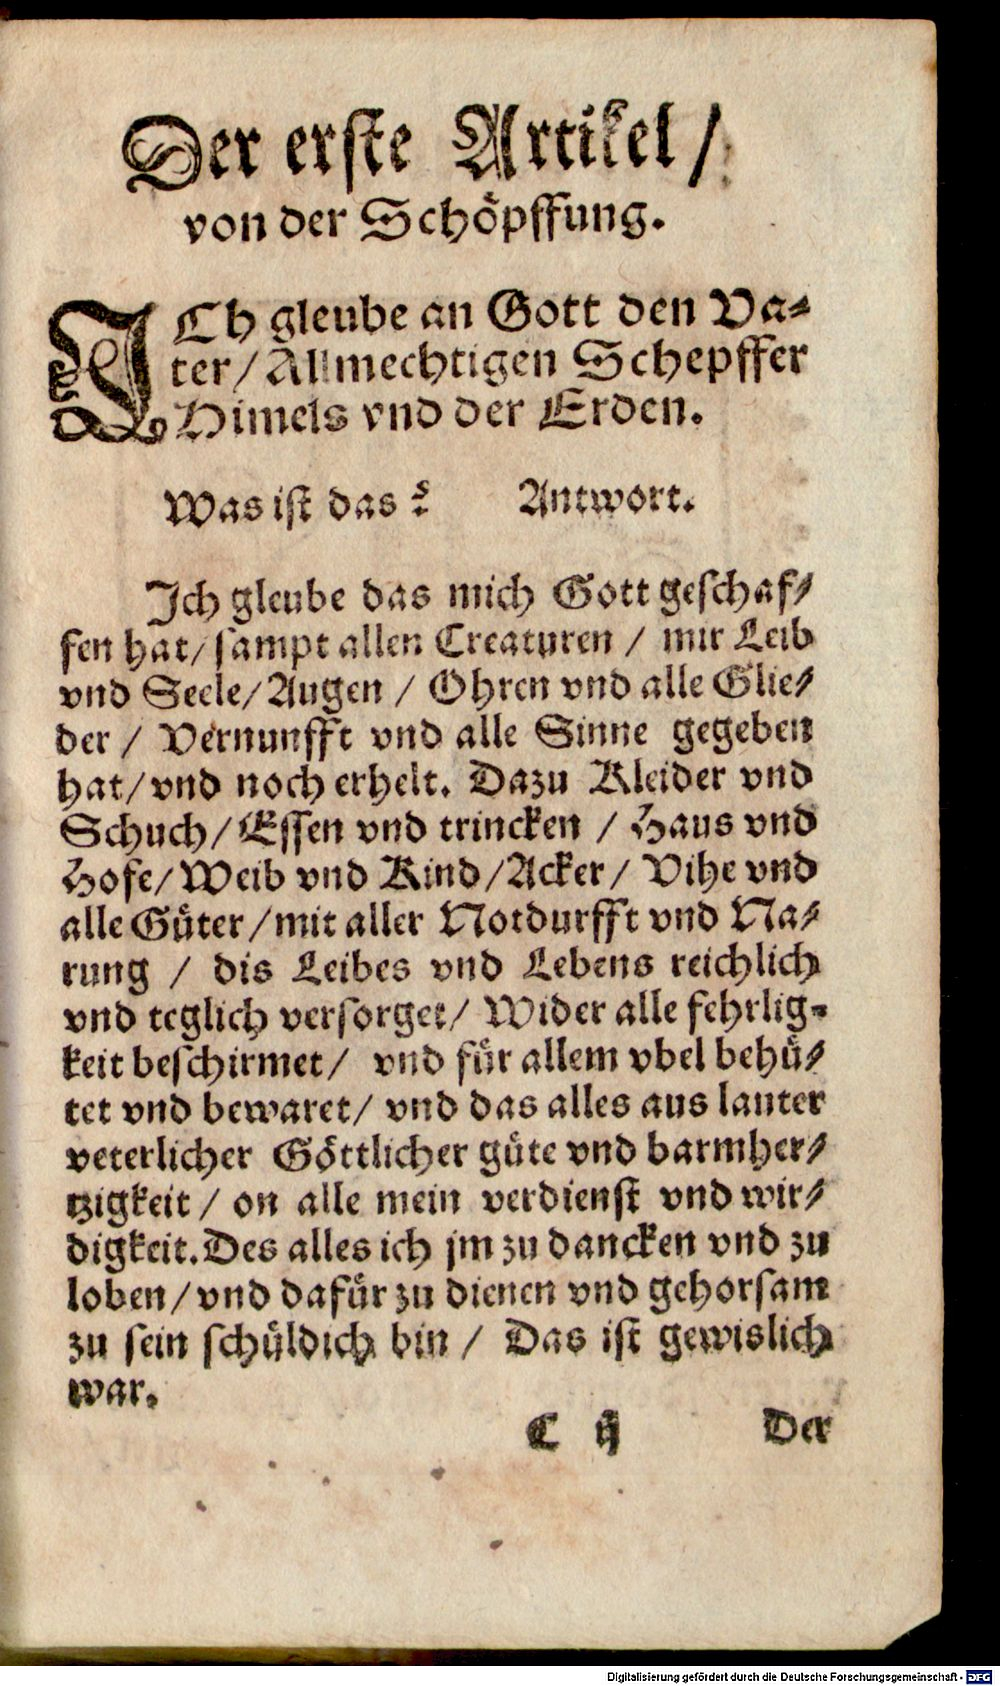 Der erste Artikel/
von der Schöpffung.
ICh gleube an Gott den Va-
ter/ Allmechtigen Schepffer
Himels vnd der Erden.
Was ist das? Antwort.
Ich gleube das mich Gott geschaf-
fen hat/ sampt allen Creaturen / mir Leib
vnd Seele/ Augen / Ohren vnd alle Glie-
der / Vernunfft vnd alle Sinne gegeben
hat/ vnd noch erhelt. Dazu Kleider vnd
Schuch/ Essen vnd trincken / Haus vnd
Hofe/ Weib vnd Kind/ Acker/ Vihe vnd
alle Güter/ mit aller Notdurfft vnd Na-
rung / dis Leibes vnd Lebens reichlich
vnd teglich versorget/ Wider alle fehrlig-
keit beschirmet/ vnd für allem vbel behü-
tet vnd bewaret/ vnd das alles aus lauter
veterlicher Göttlicher güte vnd barmher-
tzigkeit / on alle mein verdienst vnd wir-
digkeit. Des alles ich jm zu dancken vnd zu
loben/ vnd dafür zu dienen vnd gehorsam
zu sein schüldich bin / Das ist gewislich
war.
C ij Der
Digitalisierung gefördert durch die Deutsche Forschungsgemeinschaft - DFG